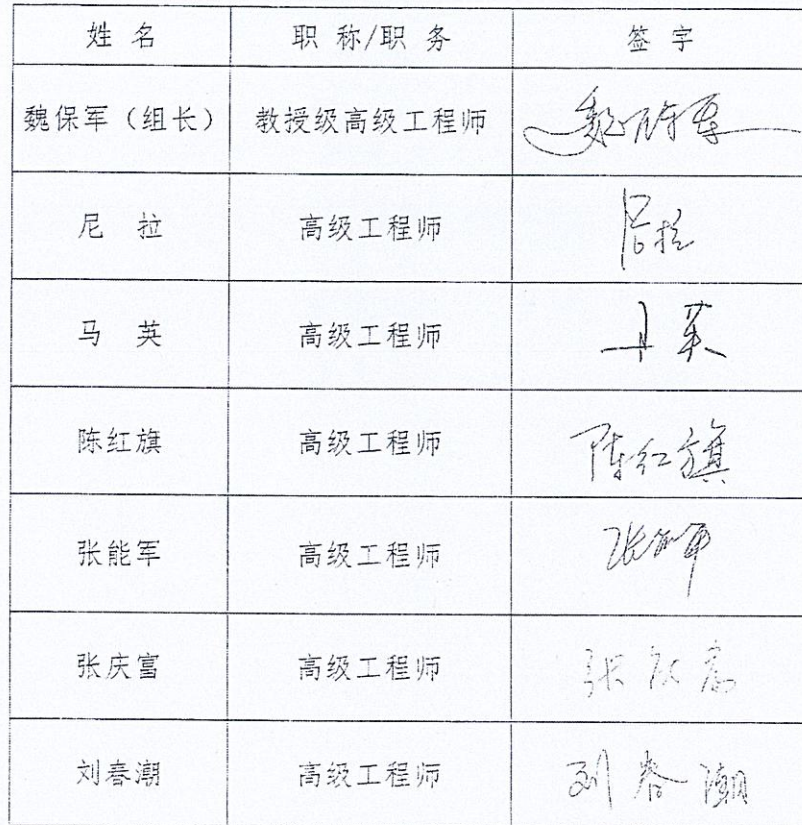 姓 名 职 称/职 务 签 字
魏保军（组长） 教授级高级工程师 魏保军
尼 拉 高级工程师 尼拉
马 英 高级工程师 马英
陈红旗 高级工程师 陈红旗
张能军 高级工程师 张能军
张庆富 高级工程师 张庆富
刘春潮 高级工程师 刘春潮